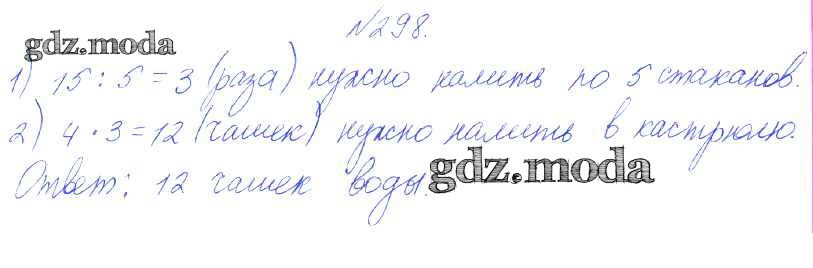 №298.
gdz.moda
1) 15 : 5 = 3 (раза) нужно налить по 5 стаканов.
2) 4 · 3 = 12 (чашек) нужно налить в кастрюлю.
Ответ: 12 чашек воды. gdz.moda